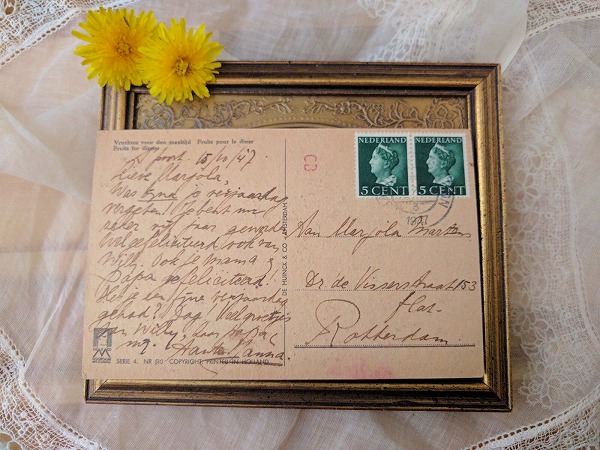 Vruchten voor den maaltijd Fruits pour le diner
Fruits for dinner
15/10/'47.
Lieve Marjola,
Was bijna je verjaardag
vergeten! Je bent nu
zeker vijf jaar geworden
Wel gefeliciteerd ook van
Willy, ook je mama &
papa gefeliciteerd!
Heb je een fijne verjaardag
gehad? Dag! Veel groetjes
van Willy, daar papa
en Tante Anna.
SERIE 4. NR COPYRIGHT, IN HOLLAND
DE MUINCK & CO AMSTERDAM
CB
NEDERLAND
5 CENT
NEDERLAND
5 CENT
1947
Aan Marjola Martens
Dr. de Visserstraat 153
flat-
Rotterdam.